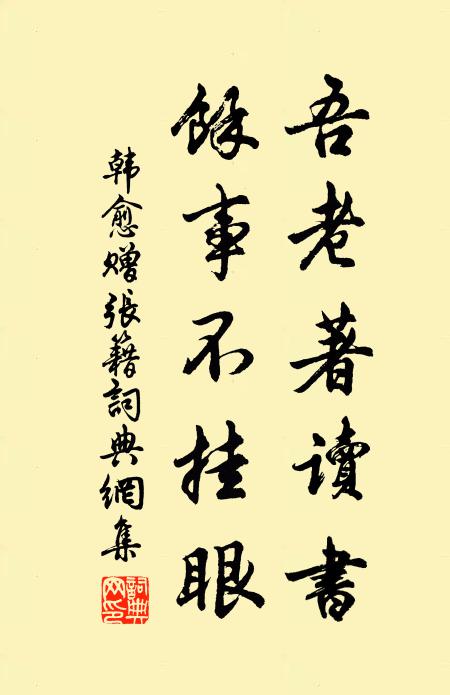 吾老著讀書
餘事不挂眼
韓愈赠張籍詞典網集
詞典網印